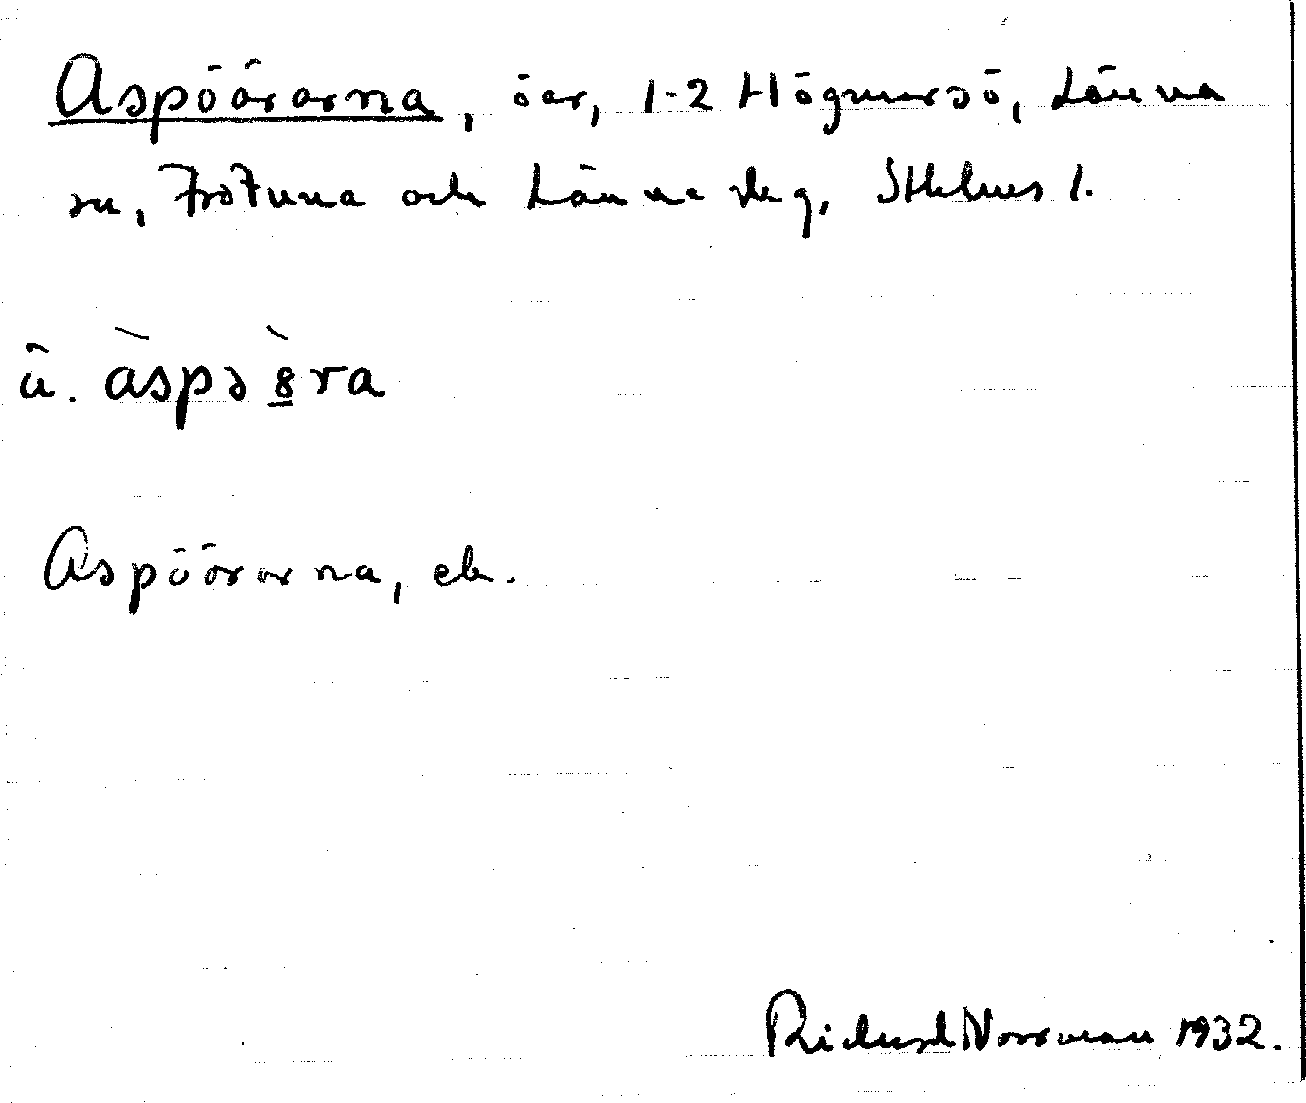 Aspöörarna, öar, 1-2 Högmarsö, Länna
sn, Frötuna och Länna skg, Sthlms l.
u. àspə 8̲̀ra
Aspöörarna, ek.
Richard Norrman 1932.